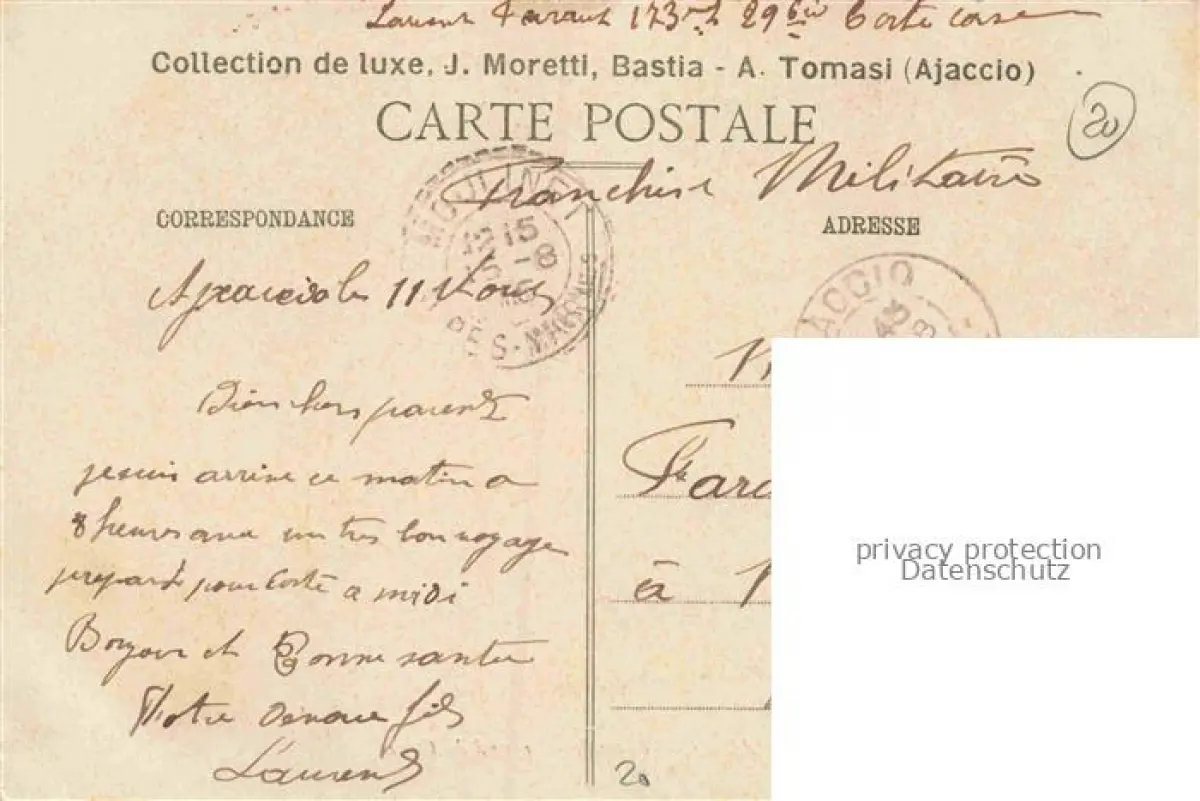 Laurent 173e 29e Cie Corte corse
Collection de luxe, J. Moretti, Bastia - A. Tomasi (Ajaccio)
20
CARTE POSTALE
Franchise Militaire
CORRESPONDANCE
ADRESSE
MOULINET
15 -8
ALPES-MARITIMES
AJACCIO
Ajaccio le 11
Bien chers parents
je suis arrive ce matin a
8 heures avec un tres bon voyage
je repars pour Corte a midi
Bonjour et Bonne sante
Votre devoue fils
Laurent
à
20
privacy protection
Datenschutz